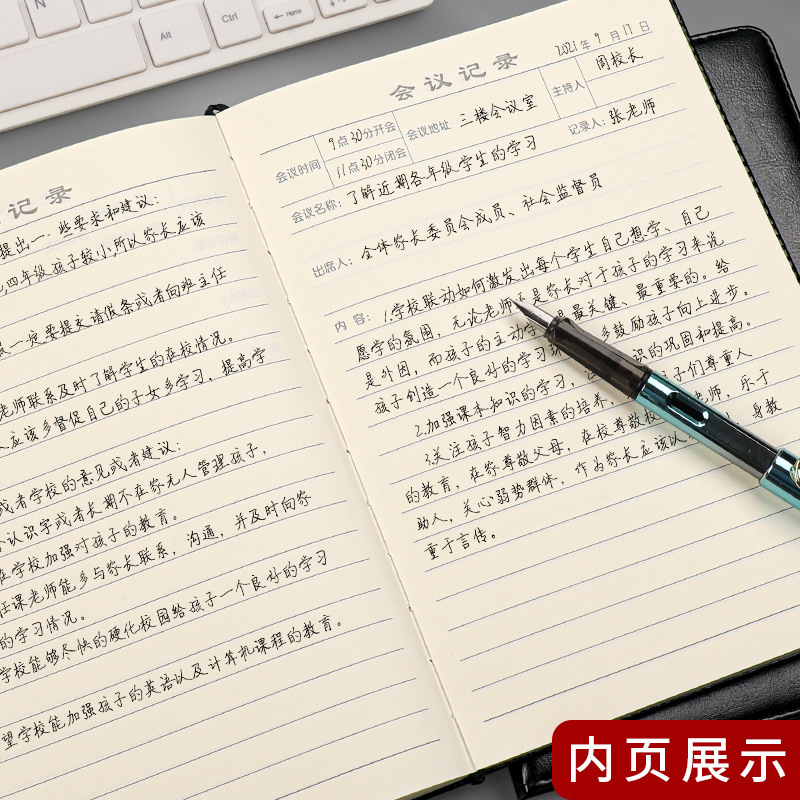 N
Alt
Ctrl
Home
记录
提出一些要求和建议:
四年级孩子较小所以家长应该
一定要提交请假条或者向班主任
老师联系及时了解学生的在校情况。
应该多督促自己的子女多学习,提高学
或者学校的意见或者建议:
认识字或者长期不在家无人管理孩子,
在学校加强对孩子的教育。
任课老师能多与家长联系,沟通,并及时向家
的学习情况。
学校能够尽快的硬化校园给孩子一个良好的学习
望学校能加强孩子的英语以及计算机课程的教育。
会议记录
2021年9月17日
会议时间
9点30分开会
11点30分闭会
会议地址 三楼会议室
主持人 周校长
会议名称: 了解近期各年级学生的学习
记录人: 张老师
出席人: 全体家长委员会成员、社会监督员
内容: 1.学校联动如何激发出每个学生自己想学、自己
愿学的氛围,无论老师还是家长对于孩子的学习来说
是外因,而孩子的主动学 最关键、最重要的。给
孩子创造一个良好的学习环 多鼓励孩子向上进步。
2.加强课本知识的学习, 识的巩固和提高。
3.关注孩子智力因素的培养, 子们尊重人
的教育,在家尊敬父母,在校尊敬 老师,乐于
助人,关心弱势群体,作为家长应该以 身教
重于言传。
内页展示